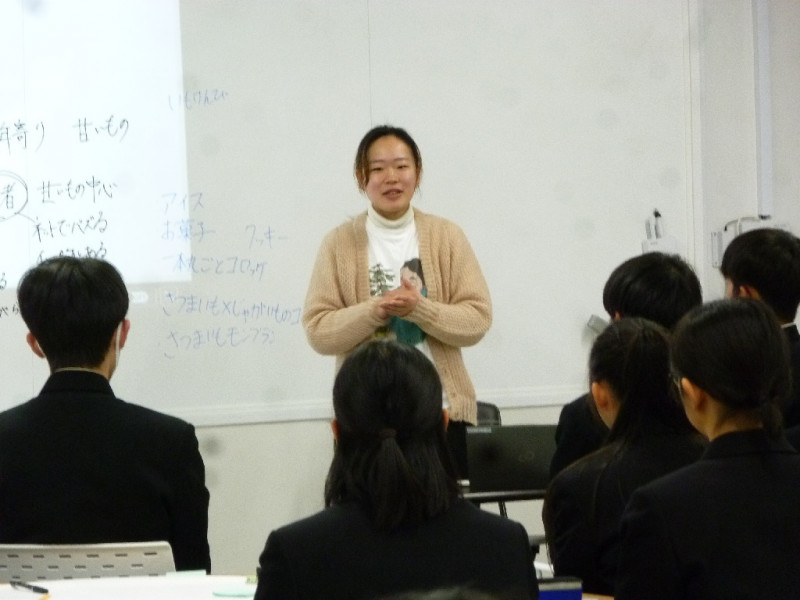 いもけんぴ
年寄り 甘いもの
者 甘いもの中心
ネットでバズる
アイス
お菓子 クッキー
一本丸ごとコロッケ
さつまいも×じゃがいものコ
さつまいもモンブラン